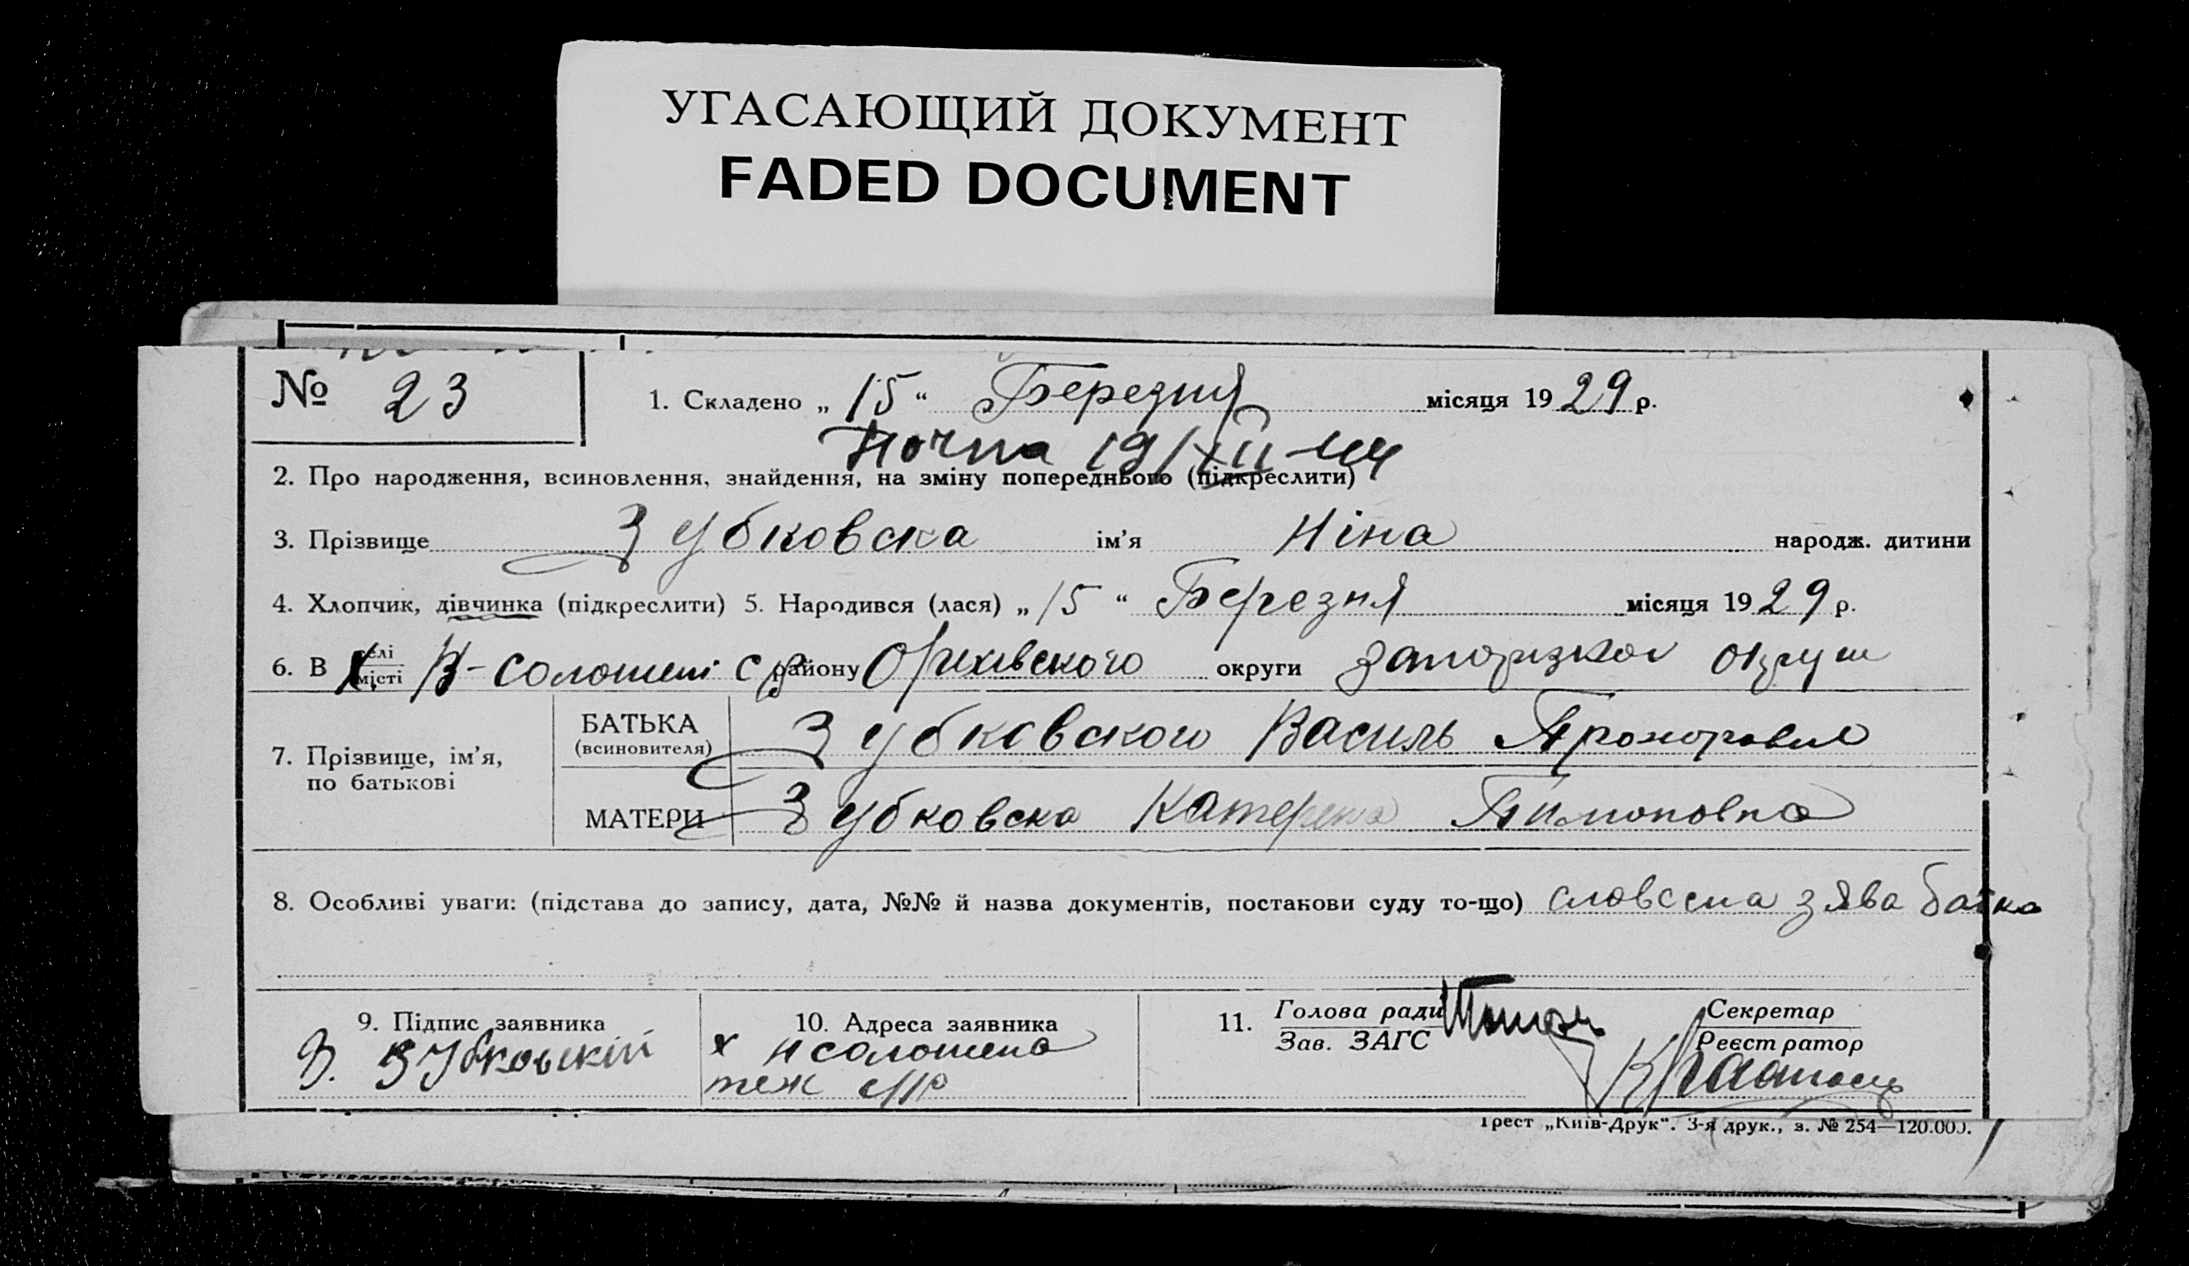 УГАСАЮЩИЙ ДОКУМЕНТ
FADED DOCUMENT
№ 23
1. Складено „ 15 “ Березня місяця 1929 р.
19/XII-44
2. Про народження, всиновлення, знайдення, на зміну попереднього (підкреслити)
3. Прізвище Зубковска ім'я Ніна народж. дитини
4. Хлопчик, дівчинка (підкреслити) 5. Народився (лася) „ 15 “ Березня місяця 1929 р.
6. В селі місті солошені району Оріхівского округи запорізкої округи
7. Прізвище, ім'я, по батькові
БАТЬКА (всиновителя) Зубковского Василь
МАТЕРИ Зубковска Катерена
8. Особливі уваги: (підстава до запису, дата, №№ й назва документів, постакови суду то-що) словесна зява батка
9. Підпис заявника
В. Зубковский
10. Адреса заявника
х Н солошено
теж
11. Голова ради
Зав. ЗАГС
Секретар
Реєстратор
Трест „Київ-Друк“. 3-я друк., з. № 254—120.000.